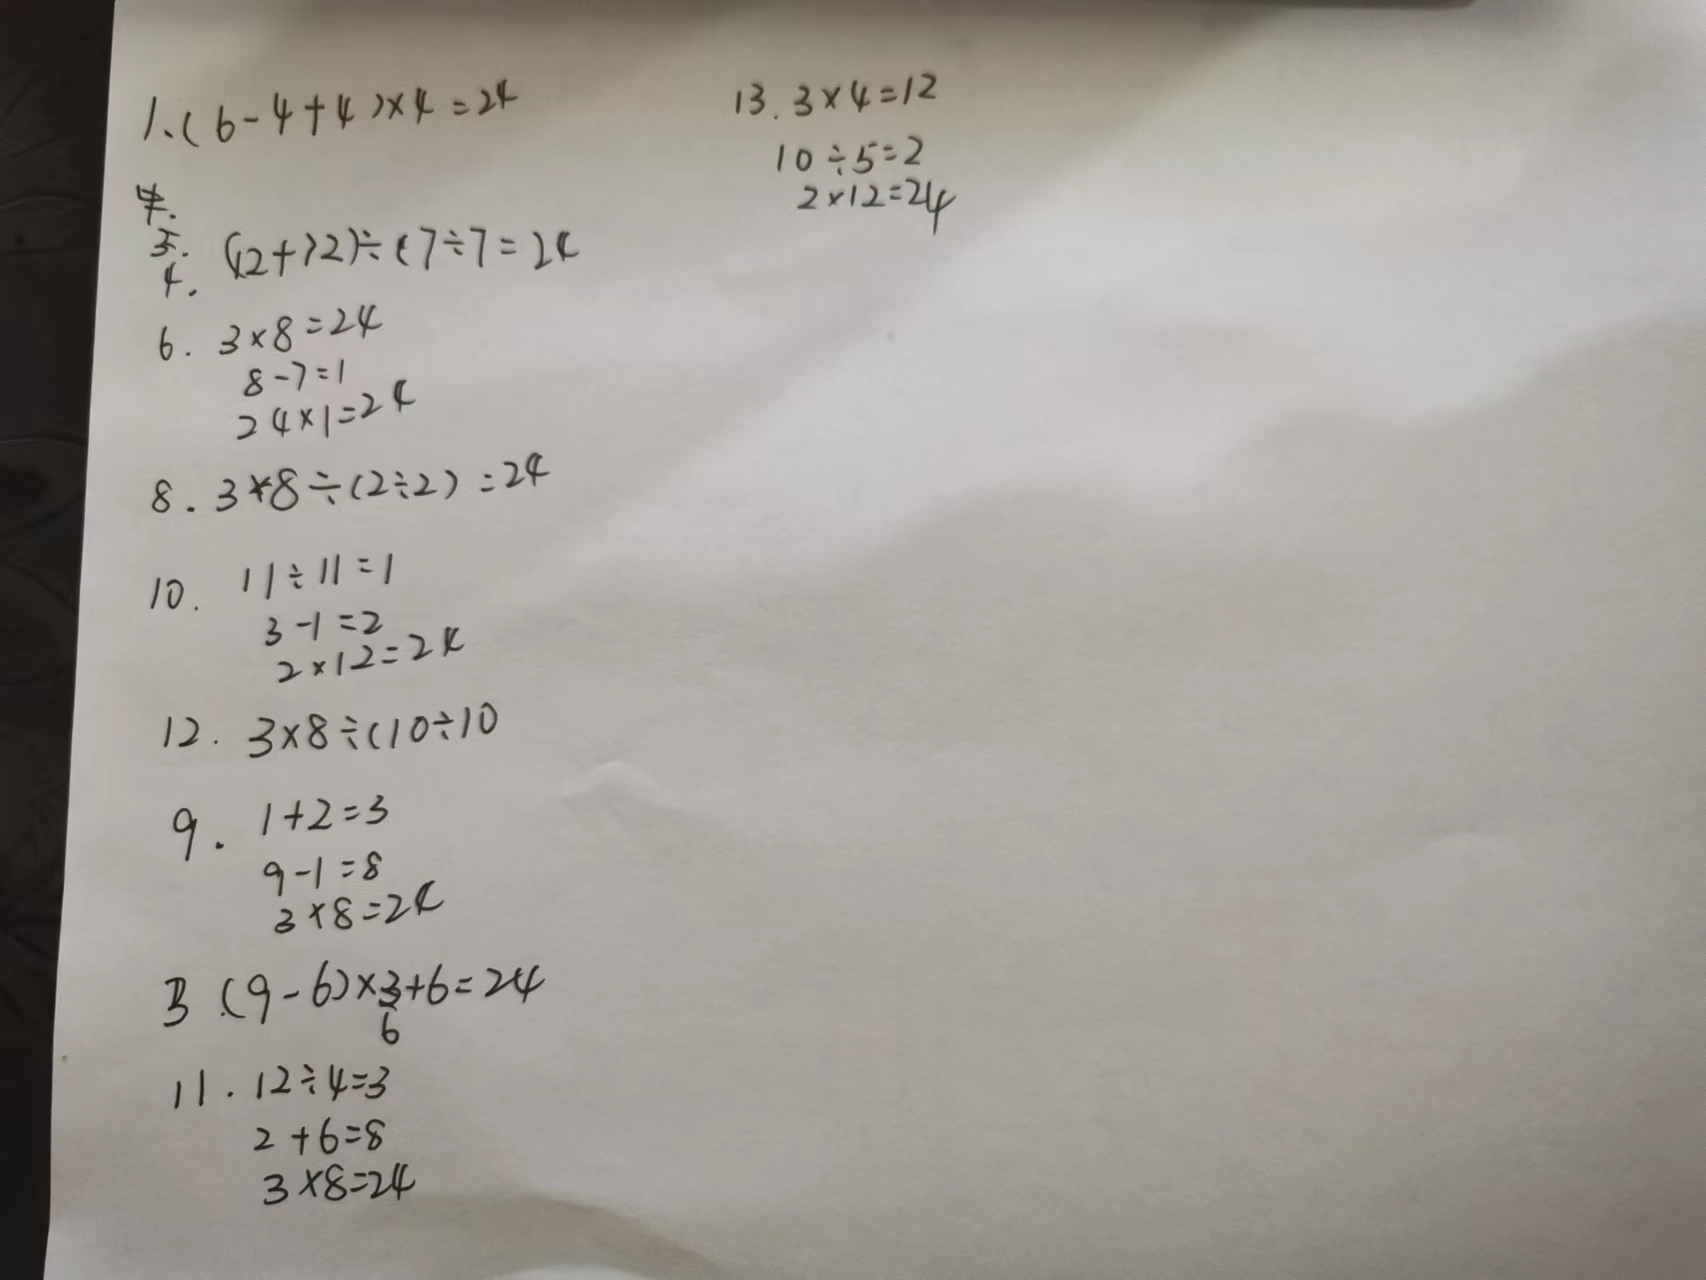 1.(6-4+4)×4=24
4.
5.
4. (12+12)÷(7÷7=24
6. 3×8=24
8-7=1
24×1=24
8. 3×8÷(2÷2)=24
10. 11÷11=1
3-1=2
2×12=24
12. 3×8÷(10÷10
9. 1+2=3
9-1=8
3×8=24
3 (9-6)×3+6=24
6
11. 12÷4=3
2+6=8
3×8=24
13. 3×4=12
10÷5=2
2×12=24